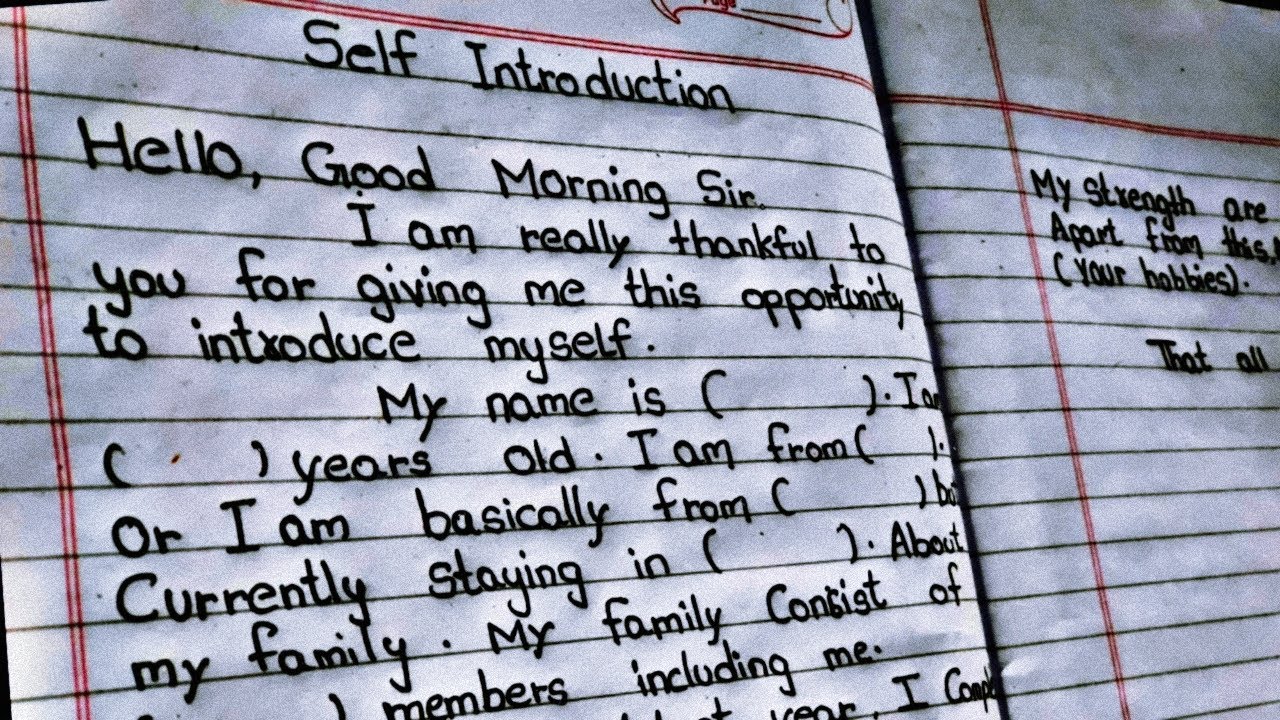 Self Introduction
Hello, Good Morning Sir.
I am really thankful to
you for giving me this opportunity
to introduce myself.
My name is (          ). I
(          ) years old. I am from (     ).
Or I am basically from (          )
Currently staying in (          ). About
my family. My family Consist of
) members including me.
year, I
My strength are
Apart from this,
(Your hobbies).
That all